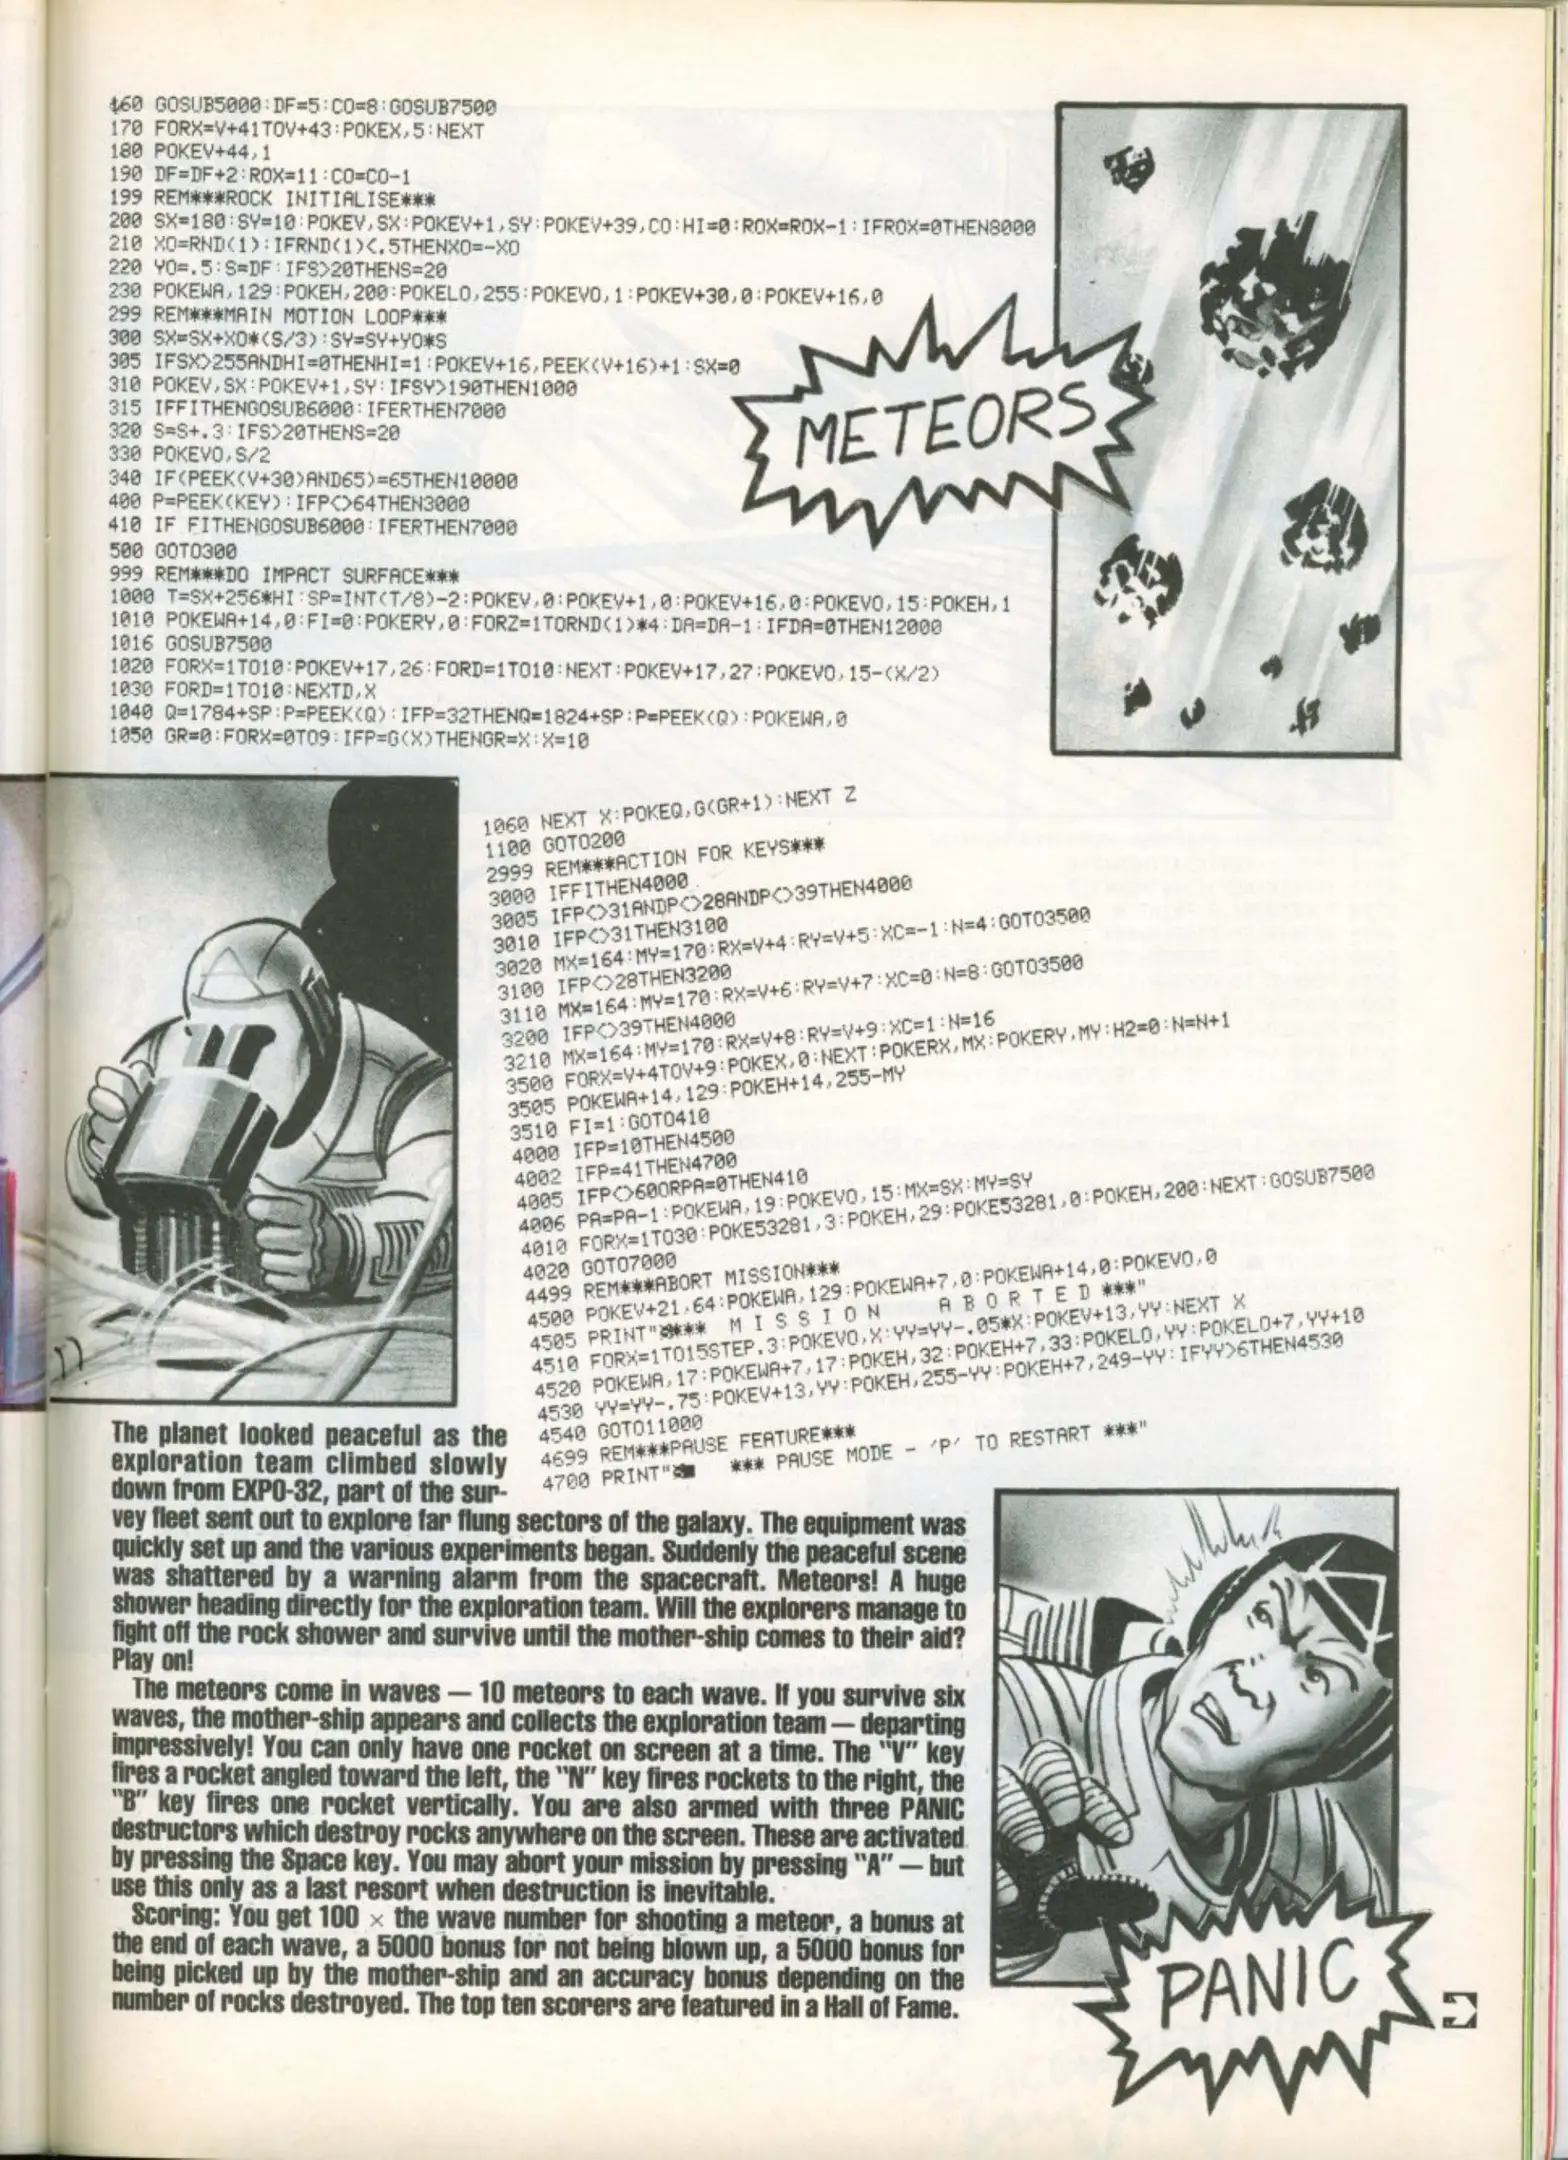 160 GOSUB5000:DF=5:CO=8:GOSUB7500
170 FORX=V+41TOV+43:POKEX,5:NEXT
180 POKEV+44,1
190 DF=DF+2:ROX=11:CO=CO-1
199 REM***ROCK INITIALISE***
200 SX=180:SY=10:POKEV,SX:POKEV+1,SY:POKEV+39,CO:HI=0:ROX=ROX-1:IFROX=0THEN8000
210 XO=RND(1):IFRND(1)<.5THENXO=-XO
220 YO=.5:S=DF:IFS>20THENS=20
230 POKEWA,129:POKEH,200:POKELO,255:POKEVO,1:POKEV+30,0:POKEV+16,0
299 REM***MAIN MOTION LOOP***
300 SX=SX+XO*(S/3):SY=SY+YO*S
305 IFSX>255ANDHI=0THENHI=1:POKEV+16,PEEK(V+16)+1:SX=0
310 POKEV,SX:POKEV+1,SY:IFSY>190THEN1000
315 IFFITHENGOSUB6000:IFERTHEN7000
320 S=S+.3:IFS>20THENS=20
330 POKEVO,S/2
340 IF(PEEK(V+30)AND65)=65THEN10000
400 P=PEEK(KEY):IFP<>64THEN3000
410 IF FITHENGOSUB6000:IFERTHEN7000
500 GOTO300
999 REM***DO IMPACT SURFACE***
1000 T=SX+256*HI:SP=INT(T/8)-2:POKEV,0:POKEV+1,0:POKEV+16,0:POKEVO,15:POKEH,1
1010 POKEWA+14,0:FI=0:POKERY,0:FORZ=1TORND(1)*4:DA=DA-1:IFDA=0THEN12000
1016 GOSUB7500
1020 FORX=1TO10:POKEV+17,26:FORD=1TO10:NEXT:POKEV+17,27:POKEVO,15-(X/2)
1030 FORD=1TO10:NEXTD,X
1040 Q=1784+SP:P=PEEK(Q):IFP=32THENQ=1824+SP:P=PEEK(Q):POKEWA,0
1050 GR=0:FORX=0TO9:IFP=G(X)THENGR=X:X=10
METEORS
1060 NEXT X:POKEQ,G(GR+1):NEXT Z
1100 GOTO200
2999 REM***ACTION FOR KEYS***
3000 IFFITHEN4000
3005 IFP<>31ANDP<>28ANDP<>39THEN4000
3010 IFP<>31THEN3100
3020 MX=164:MY=170:RX=V+4:RY=V+5:XC=-1:N=4:GOTO3500
3100 IFP<>28THEN3200
3110 MX=164:MY=170:RX=V+6:RY=V+7:XC=0:N=8:GOTO3500
3200 IFP<>39THEN4000
3210 MX=164:MY=170:RX=V+8:RY=V+9:XC=1:N=16
3500 FORX=V+4TOV+9:POKEX,0:NEXT:POKERX,MX:POKERY,MY:H2=0:N=N+1
3505 POKEWA+14,129:POKEH+14,255-MY
3510 FI=1:GOTO410
4000 IFP=10THEN4500
4002 IFP=41THEN4700
4005 IFP<>60ORPA=0THEN410
4006 PA=PA-1:POKEWA,19:POKEVO,15:MX=SX:MY=SY
4010 FORX=1TO30:POKE53281,3:POKEH,29:POKE53281,0:POKEH,200:NEXT:GOSUB7500
4020 GOTO7000
4499 REM***ABORT MISSION***
4500 POKEV+21,64:POKEWA,129:POKEWA+7,0:POKEWA+14,0:POKEVO,0
4505 PRINT"*** M I S S I O N   A B O R T E D ***"
4510 FORX=1TO15STEP.3:POKEVO,X:YY=YY-.05*X:POKEV+13,YY:NEXT X
4520 POKEWA,17:POKEWA+7,17:POKEH,32:POKEH+7,33:POKELO,YY:POKELO+7,YY+10
4530 YY=YY-.75:POKEV+13,YY:POKEH,255-YY:POKEH+7,249-YY:IFYY>6THEN4530
4540 GOTO11000
4699 REM***PAUSE FEATURE***
4700 PRINT"   *** PAUSE MODE - 'P' TO RESTART ***"
The planet looked peaceful as the
exploration team climbed slowly
down from EXPO-32, part of the sur-
vey fleet sent out to explore far flung sectors of the galaxy. The equipment was
quickly set up and the various experiments began. Suddenly the peaceful scene
was shattered by a warning alarm from the spacecraft. Meteors! A huge
shower heading directly for the exploration team. Will the explorers manage to
fight off the rock shower and survive until the mother-ship comes to their aid?
Play on!
The meteors come in waves — 10 meteors to each wave. If you survive six
waves, the mother-ship appears and collects the exploration team — departing
impressively! You can only have one rocket on screen at a time. The "V" key
fires a rocket angled toward the left, the "N" key fires rockets to the right, the
"B" key fires one rocket vertically. You are also armed with three PANIC
destructors which destroy rocks anywhere on the screen. These are activated
by pressing the Space key. You may abort your mission by pressing "A" — but
use this only as a last resort when destruction is inevitable.
Scoring: You get 100 × the wave number for shooting a meteor, a bonus at
the end of each wave, a 5000 bonus for not being blown up, a 5000 bonus for
being picked up by the mother-ship and an accuracy bonus depending on the
number of rocks destroyed. The top ten scorers are featured in a Hall of Fame.
PANIC